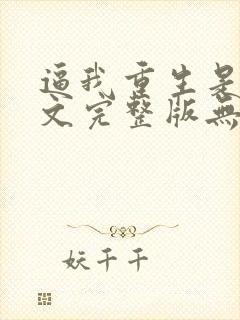 逼我重生是
文完整版無
妖千千